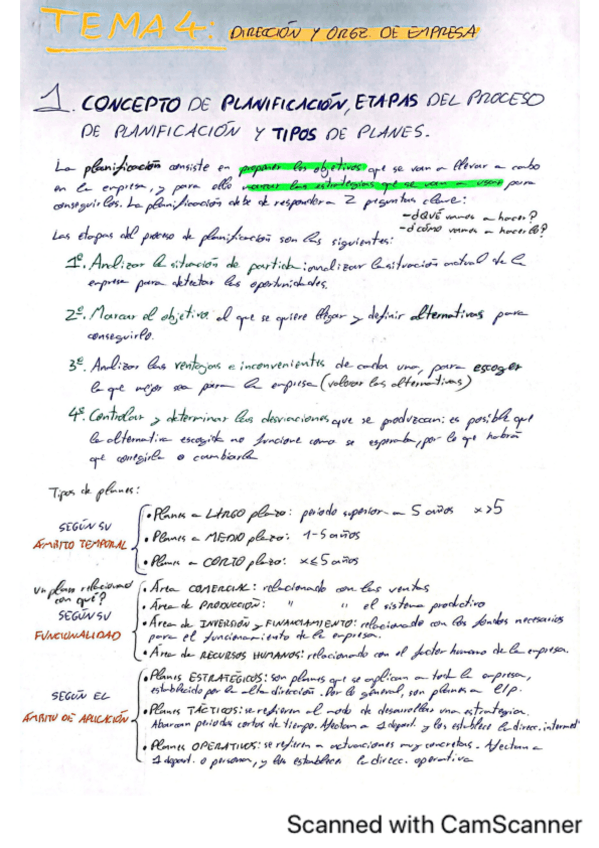 TEMA 4: DIRECCIÓN Y ORGZ. DE EMPRESA
1. CONCEPTO DE PLANIFICACIÓN, ETAPAS DEL PROCESO
DE PLANIFICACIÓN Y TIPOS DE PLANES.
La planificación consiste en proponer los objetivos que se van a llevar a cabo
en la empresa, y para ello marcar las estrategias que se van a usar para
conseguirlos. La planificación debe de responder a 2 preguntas clave:
- ¿QUÉ vamos a hacer?
- ¿CÓMO vamos a hacerlo?
Las etapas del proceso de planificación son las siguientes:
1º. Analizar la situación de partida: analizar la situación actual de la
empresa para detectar las oportunidades.
2º. Marcar el objetivo al que se quiere llegar y definir alternativas para
conseguirlo.
3º. Analizar las ventajas e inconvenientes de cada una, para escoger
la que mejor sea para la empresa (valorar las alternativas)
4º. Controlar y determinar las desviaciones que se produzcan: es posible que
la alternativa escogida no funcione como se esperaba, por lo que habrá
que corregirla o cambiarla
Tipos de planes:
SEGÚN SU
ÁMBITO TEMPORAL
• Planes a LARGO plazo: periodo superior a 5 años x>5
• Planes a MEDIO plazo: 1-5 años
• Planes a CORTO plazo: x≤5 años
Un plan relacionad
con qué?
SEGÚN SU
FUNCIONALIDAD
• Área COMERCIAL: relacionado con las ventas
• Área de PRODUCCIÓN: " " el sistema productivo
• Área de INVERSIÓN y FINANCIAMIENTO: relacionado con los fondos necesarios
para el funcionamiento de la empresa.
• Área de RECURSOS HUMANOS: relacionado con el factor humano de la empresa.
SEGÚN EL
ÁMBITO DE APLICACIÓN
• Planes ESTRATÉGICOS: son planes que se aplican a toda la empresa,
establecido por la alta dirección. Por lo general, son planes a l/p.
• Planes TÁCTICOS: se refieren al modo de desarrollar una estrategia.
Abarcan periodos cortos de tiempo. Afectan a 1 depart. y los establece la direcc. intermed
• Planes OPERATIVOS: se refieren a actuaciones muy concretas. Afectan a
1 depart. o persona, y los establece la direcc. operativa
Scanned with CamScanner